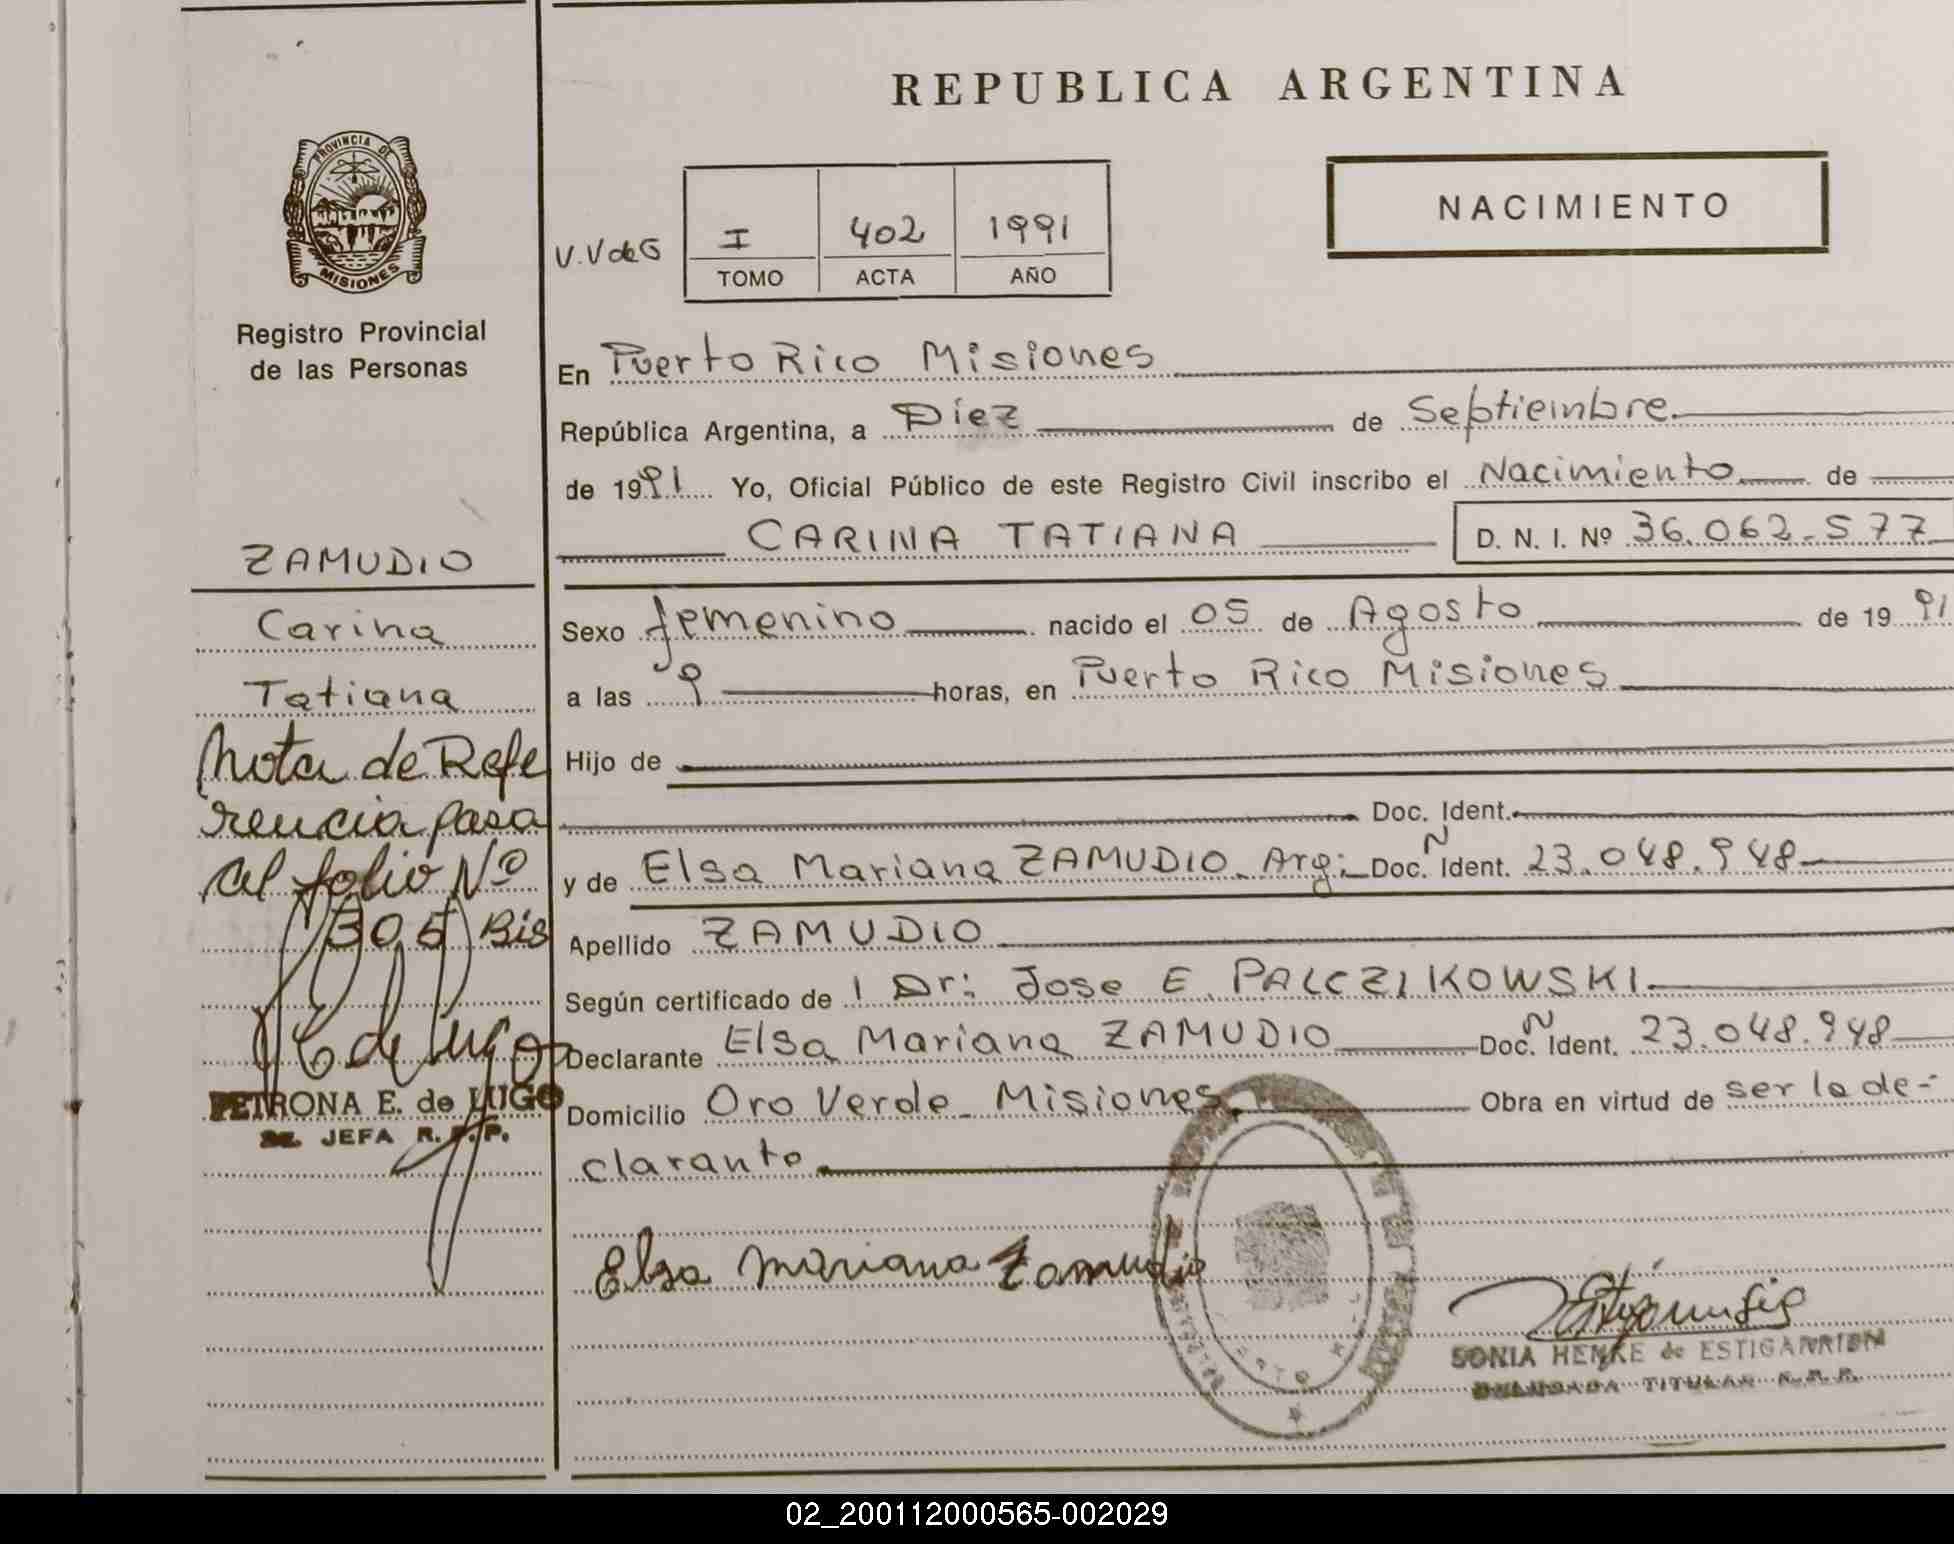 REPUBLICA ARGENTINA
PROVINCIA DE
MISIONES
NACIMIENTO
V.V de G
I 402 1991
TOMO ACTA AÑO
Registro Provincial
de las Personas
En Puerto Rico Misiones
República Argentina, a Diez de Septiembre
de 1991 Yo, Oficial Público de este Registro Civil inscribo el Nacimiento de
CARINA TATIANA D. N. I. Nº 36.062.577
ZAMUDIO
Carina
Tatiana
Nota de Refe
rencia pasa
al folio Nº
305 Bis
PETRONA E. de LUGO
JEFA R. P. P.
Sexo femenino nacido el 05 de Agosto de 1991
a las 9 horas, en Puerto Rico Misiones
Hijo de
Doc. Ident.
y de Elsa Mariana ZAMUDIO. Arg: Doc. N Ident. 23.048.948
Apellido ZAMUDIO
Según certificado de Dr: Jose E. PALCZIKOWSKI
Declarante Elsa Mariana ZAMUDIO Doc. N Ident. 23.048.948
Domicilio Oro Verde - Misiones. Obra en virtud de ser la de-
clarante
Elsa Mariana Zamudio
SONIA HENKE de ESTIGARRIBIA
DELEGADA TITULAR R.P.P.
02_200112000565-002029